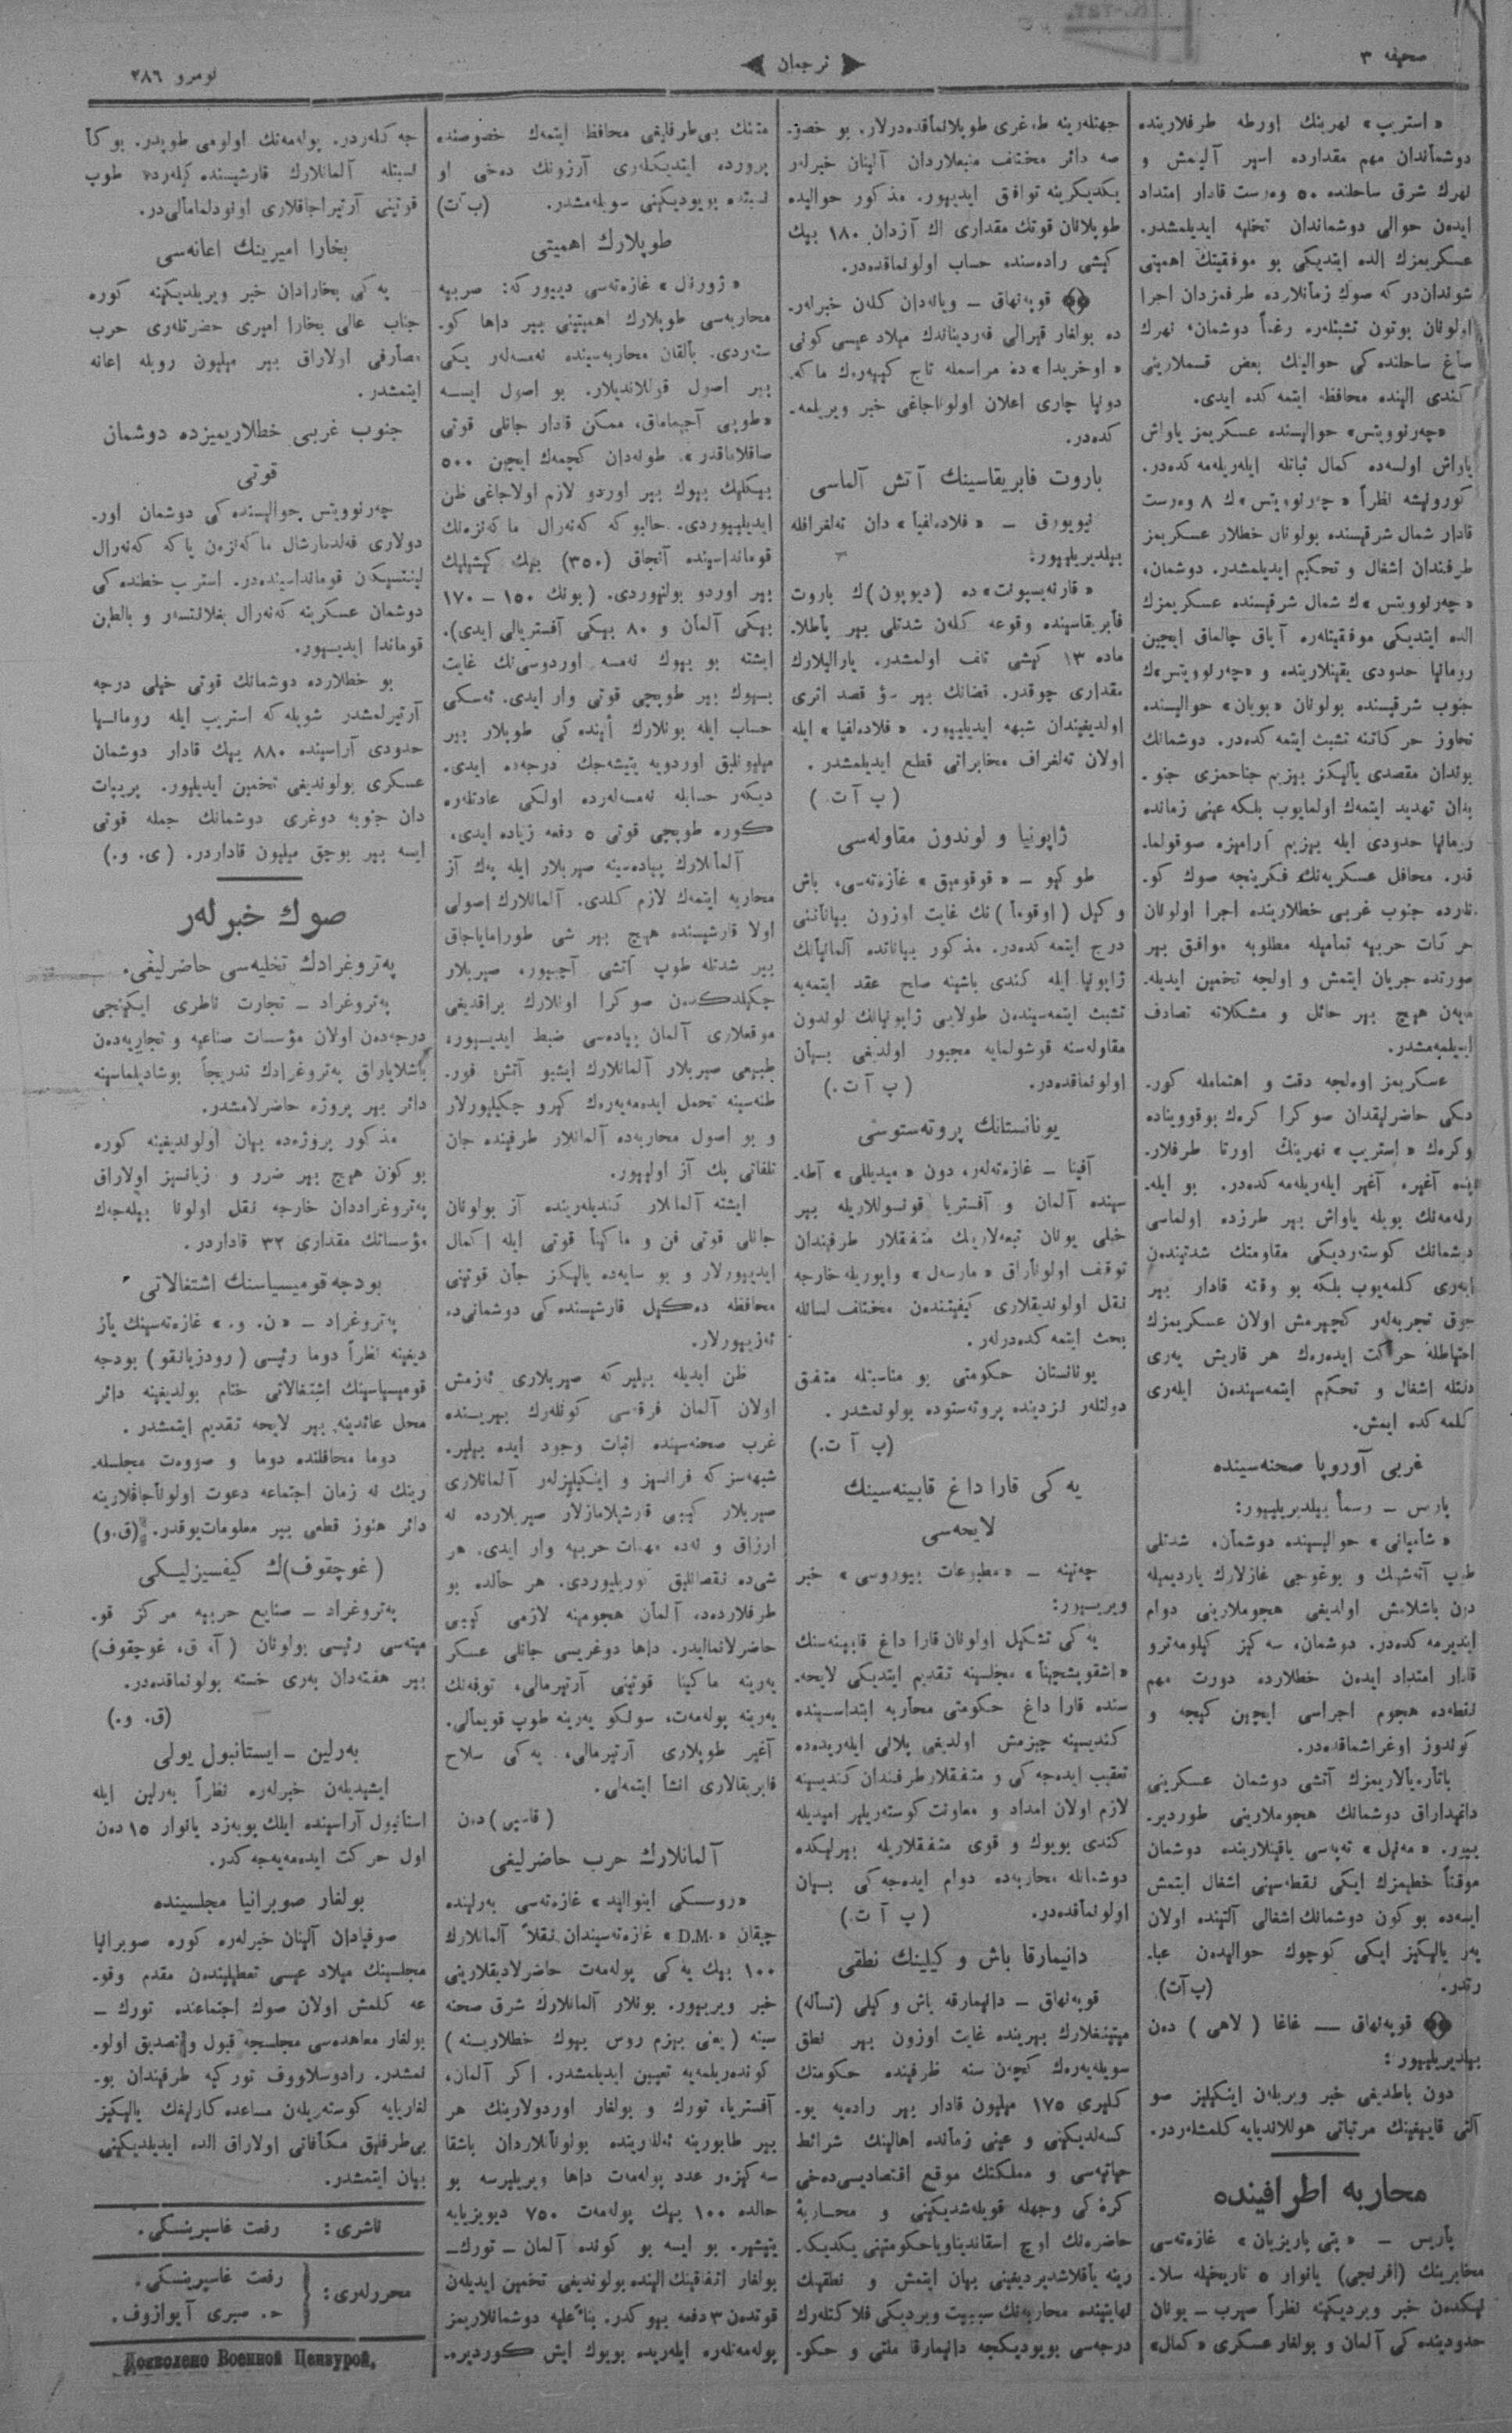 صحیفه ٣
ترجمان
نومرو ٢٨٦
« استریپ » نهرینك اورطه طرفلارینده
دوشماندان مهم مقدارده اسیر آلینمش و
نهرك شرق ساحلنده ٥٠ وەرست قادار امتداد
ایدەن حوالی دوشماندان تخلیه ایدیلمشدر.
عسكریمزك الده ایتدیكی بو موفقیتك اهمیتی
شوندان‌در كه صوك زمانلارده طرفمزدان اجرا
اولونان بوتون تشبثلەره رغماً دوشمان، نهرك
صاغ ساحلنده كی حوالینك بعض قسملارینی
كندی الینده محافظه ایتمه كده ایدی.
«چەرنوویتس» حوالیسنده عسكریمز یاواش
یاواش اولسەده كمال ثباتله ایلەریلەمه كدەدر.
كورولیشه نظراً « چەرنوویتس »ك ٨ وەرست
قادار شمال شرقیسنده بولونان خطلار عسكریمز
طرفندان اشغال و تحكیم ایدیلمشدر. دوشمان،
« چەرنوویتس »ك شمال شرقیسنده عسكریمزك
الده ایتدیكی موفقیتلەره آیاق چالماق ایچین
رومانیا حدودی یقینلارینده و «چەرنوویتس»ك
جنوب شرقیسنده بولونان «بویان» حوالیسنده
تجاوز حركاتنه تشبث ایتمه كدەدر. دوشمانك
بوندان مقصدی یالیكز بیزیم جناحمزی جنو‐
بدان تهدید ایتمەك اولمایوب بلكه عینی زمانده
رومانیا حدودی ایله بیزیم آرامیزه صوقولما‐
قدر. محافل عسكریەنك فكرینجه صوك كو‐
نلرده جنوب غربی خطلارینده اجرا اولونان
حركات حربیه تمامیله مطلوبه موافق بیر
صورتده جریان ایتمش و اولجه تخمین ایدیله‐
میەن هیچ بیر حائل و مشكلاته تصادف
ایدیلمەمشدر.
عسكریمز اوەلجه دقت و اهتمامله كور‐
دیكی حاضرلیقدان صوكرا كرەك بوقووینا‌ده
وكرەك « استریپ » نهرینك اورتا طرفلار‐
ینده آغیر، آغیر ایلەریلەمه كدەدر. بو ایله‐
رلەمەنك بویله یاواش بیر طرزده اولماسی
دشمانك كوستەردیكی مقاومتك شدتیندەن
ایەری كلمەیوب بلكه بو وقته قادار بیر
چوق تجربەلەر كچیرمش اولان عسكریمزك
احتیاطله حركت ایدەرەك هر قاریش یەری
دقتله اشغال و تحكیم ایتمەسیندەن ایلەری
كلمه كده ایمش.
غربی آوروپا صحنەسینده
پارس ــ رسماً بیلدیریلیبور:
« شامپانی » حوالیسینده دوشمان، شدتلی
طوپ آتەشیك و بوغوجی غازلارك یاردیمیله
دون باشلامش اولدیغی هجوملارینی دوام
ایتدیرمه كدەدر. دوشمان، سەكیز كیلومەترو
قادار امتداد ایدەن خطلارده دورت مهم
نقطەده هجوم اجراسی ایچین كیجه و
كوندوز اوغراشماقدەدر.
باتارەیالاریمزك آتشی دوشمان عسكرینی
داغیداراق دوشمانك هجوملارینی طوردیر‐
یبور. « مەنیل » تەپەسی یاقینلارینده دوشمان
موقتاً خطیمزك ایكی نقطەسینی اشغال ایتمش
ایسەده بوكون دوشمانك اشغالی آلتینده اولان
یەر یالیكیز ایكی كوچوك حوالیدەن عبا‐
رتدر. (پ آ ت)
قوپەنهاق ــ غاغا ( لاهی ) دەن
بیلدیریلیبور :
دون باطدیغی خبر ویریلەن اینكیلیز صو
آلتی قاییغینك مرتباتی هوللاندیایه كلمشلەردر.
محاربه اطرافینده
پاریس ــ « پتی پاریزیان » غازەتەسی
مخابرینك (افرنجی) یانوار ٥ تاریخیله سلا‐
نیكدەن خبر ویردیكینه نظراً صرب ــ یونان
حدودینده كی آلمان و بولغار عسكری «كمال»
جهتلەرینه طوغری طوپلانماقدەدرلار. بو خصو‐
صه دائر مختلف منبعلاردان آلینان خبرلەر
یكدیكرینه توافق ایدیبور. مذكور حوالیده
طوپلانان قوتك مقداری اك آزدان ١٨٠ بیك
كیشی رادەسنده حساب اولونماقدەدر.
قوپەنهاق ــ ویانەدان كلەن خبرلەر‐
ده بولغار قیرالی فەردیناندك میلاد عیسی كونی
« اوخریدا » ده مراسمله تاج كییەرەك ماكه‐
دونیا چاری اعلان اولوناجاغی خبر ویریلمه‐
كدەدر.
باروت فابریقاسینك آتش آلماسی
نیویورق ــ « فلادەلفیا » دان تەلغرافله
بیلدیریلیبور:
« قارنەیسپوئنت» ده (دیوپون)ك باروت
فابریقاسینده وقوعه كلەن شدتلی بیر پاطلا‐
ماده ١٣ كیشی تلف اولمشدر. یارالیلارك
مقداری چوقدر. قضانك بیر سؤ قصد اثری
اولدیغیندان شبهه ایدیلیبور. « فلادەلفیا » ایله
اولان تەلغراف مخابراتی قطع ایدیلمشدر.
( پ آ ت )
ژاپونیا و لوندون مقاولەسی
طوكیو ــ « قوقومیق » غازەتەسی، باش
وكیل (اوقوما) نك غایت اوزون بیاناتنی
درج ایتمه كدەدر. مذكور بیاناتده آلمانیانك
ژاپونیا ایله كندی باشینه صلح عقد ایتمەیه
تشبث ایتمەسیندەن طولایی ژاپونیانك لوندون
مقاولەسنه قوشولمایه مجبور اولدیغی بیان
اولونماقدەدر. ( پ آ ت.)
یونانستانك پروتەستوسی
آفینا ــ غازەتەلەر، دون « میدیللی » آطه‐
سینده آلمان و آفستریا قونسوللاریله بیر
خیلی یونان تبعەلارینك متفقلار طرفیندان
توقیف اولوناراق « مارسەل » واپوریله خارجه
نقل اولوندیقلاری كیفیتندەن مختلف لسانله
بحث ایتمه كدەدرلەر .
یونانستان حكومتی بو مناسبتله متفق
دولتلەر نزدینده پروتەستوده بولونمشدر .
(پ آ ت.)
یەكی قارا داغ قابینەسینك
لایحەسی
چەتینه ــ « مطبوعات بیوروسی » خبر
ویریبور:
یەكی تشكیل اولونان قارا داغ قابینەسنك
« اشقوپشچینا » مجلسینه تقدیم ایتدیكی لایحه‐
سنده قارا داغ حكومتی محاربه ابتداسینده
كندیسینه چیزمش اولدیغی پلانی ایلەریدەده
تعقیب ایدەجه كی و متفقلار طرفندان كندیسینه
لازم اولان امداد و معاونت كوستەریلیر امیدیله
كندی بویوك و قوی متفقلاریله بیرلیكده
دوشمانله محاربەده دوام ایدەجه كی بیان
اولونماقدەدر. ( پ آ ت )
دانیمارقا باش و كیلینك نطقی
قوپەنهاق ــ دانیمارقه باش وكیلی (تسآله)
میتینغلارك بیرینده غایت اوزون بیر نطق
سویلەیەرەك كچەن سنه ظرفینده حكومتك
كلیری ١٧٥ میلیون قادار بیر رادەیه یو‐
كسەلدیكینی و عینی زمانده اهالینك شرائط
حیاتیەسی و مملكتك موقع اقتصادیسی‌دەخی
كرە كی وجهله قویلەشدیكینی و محاربۀ
حاضرەنك اوچ اسقاندیناویا حكومتینی یكدیكه‐
رینه یاقلاشدیردیغینی بیان ایتمش و نطقینك
نهایتینده محاربەنك سببیت ویردیكی فلاكتلەرك
درجەسی بویودیكچه دانیمارقا ملتی و حكو‐
متنك بی‌طرفلیغی محافظ ایتمەك خصوصنده
پرورده ایتدیكلەری آرزونك دەخی او
نسبتده بویودیكینی سویلەمشدر. (پ آ ت)
طوپلارك اهمیتی
« ژورنال » غازەتەسی دییوركه: صربیه
محاربەسی طوپلارك اهمیتینی بیر داها كو‐
ستەردی. بالقان محاربەسینده نەمسەلەر یكی
بیر اصول قوللاندیلار. بو اصول ایسه
«طوپی آجیماماق، ممكن قادار جانلی قوتی
صاقلاماقدر». طونەدان كچمەك ایچین ٥٠٠
بیكلیك بیوك بیر اوردو لازم اولاجاغی ظن
ایدیلیبوردی. حالبوكه كەنەرال ماكەنزەنك
قومانداسینده آنجاق (٣٥٠) بیك كیشیلیك
بیر اوردو بولنیوردی. (بونك ١٥٠ ــ ١٧٠
بیكی آلمان و ٨٠ بیكی آفستریالی ایدی).
ایشته بو بیوك نەمسه اوردوسی‌نك غایت
بیوك بیر طوپچی قوتی وار ایدی. ئەسكی
حساب ایله بونلارك أینده كی طوپلار بیر
میلیونلیق اوردویه یتیشەجك درجەده ایدی.
دیكەر حسابله نەمسەلەرده اولكی عادتلەره
كوره طوپچی قوتی ٥ دفعه زیاده ایدی.
آلمانلارك پیادەسینه صیربلار ایله پەك آز
محاربه ایتمەك لازم كلدی. آلمانلارك اصولی
اولا قارشیسنده هیچ بیر شی طورامایاجاق
بیر شدتله طوپ آتشی آچیبور، صیربلار
چكیلدكدەن صوكرا اونلارك براقدیغی
موقعلاری آلمان پیادەسی ضبط ایدیبور،
طبیعی صیربلار آلمانلارك ایشبو آتش فور‐
طنەسینه تحمل ایدەمەیەرەك كیرو چكیلیورلار
و بو اصول محاربەده آلمانلار طرفینده جان
تلفاتی پك آز اولیبور.
ایشته آلمانلار كندیلەرینده آز بولونان
جانلی قوتی فن و ماكینا قوتی ایله اكمال
ایدیبورلار و بو سایەده یالیكز جان قوتینی
محافظه دەكیل قارشیسنده كی دوشمانی‌ده
ئەزییورلار.
ظن ایدیله بیلیركه صیربلاری ئەزمش
اولان آلمان فرقەسی كونلەرك بیریسنده
غرب صحنەسینده اثبات وجود ایده بیلیر.
شبهەسزكه فرانسیز و اینكیلیزلەر آلمانلاری
صیربلار كیبی قارشیلامازلار صیربلارده نه
ارزاق و نەده مهمات حربیه وار ایدی. هر
شی‌ده نقصانلیق كوریلیوردی. هر حالده بو
طرفلاردەد، آلمان هجومینه لازمی كیبی
حاضرلانمالیدر. داها دوغریسی جانلی عسكر
یەرینه ماكینا قوتینی آرتیرمالی، توفەنك
یەرینه پولەمەت، سونكو یەرینه طوپ قویمالی.
آغیر طوپلاری آرتیرمالی، یەكی سلاح
فابریقالاری انشا ایتمەلی.
( قاسپی ) دەن
آلمانلارك حرب حاضرلیغی
«روسسكی اینوالید» غازەتەسی بەرلینده
چیقان « D.M. » غازەتەسیندان نقلاً آلمانلارك
١٠٠ بیك یەكی پولەمەت حاضرلادیقلارینی
خبر ویریبور. بونلار آلمانلارك شرق صحنه
سینه (یعنی بیزم روس بیوك خطلارینه)
كوندەریلمەیه تعیین ایدیلمشدر. اكر آلمان،
آفستریا، تورك و بولغار اوردولارینك هر
بیر طابورینه ئەللەرینده بولونانلاردان باشقا
سەكیزەر عدد پولەمەت داها ویریلیرسه بو
حالده ١٠٠ بیك پولەمەت ٧٥٠ دیویزیایه
یتیشیر. بو ایسه بو كونده آلمان ــ تورك ــ
بولغار اتفاقینك الینده بولوندیغی تخمین ایدیلەن
قوتدەن ٣ دفعه بیوكدر. بناءً علیه دوشمانلاریمز
پولەمەتلەره ایلەریده بویوك ایش كوردیره‐
جه كلەردر. پولەمەتك اولومی طوپدر. بوكا
نسبتله آلمانلارك قارشیسنده كیلەرده طوپ
قوتینی آرتیراجاقلاری اونودلمامالی‌در.
بخارا امیرینك اعانەسی
یەكی بخارادان خبر ویریلدیكینه كوره
جناب عالی بخارا امیری حضرتلەری حرب
مصارفی اولاراق بیر میلیون روبله اعانه
ایتمشدر.
جنوب غربی خطلاریمیزده دوشمان
قوتی
چەرنوویتس حوالیسنده كی دوشمان اور‐
دولاری فەلدمارشال ماكەنزەن یاكه كەنەرال
لینتسیگن قومانداسینده‌در. استریپ خطنده كی
دوشمان عسكرینه كەنەرال بفلانتسەر و بالطین
قوماندا ایدیبور.
بو خطلارده دوشمانك قوتی خیلی درجه
آرتیرلمشدر شویله كه استریپ ایله رومانیا
حدودی آراسینده ٨٨٠ بیك قادار دوشمان
عسكری بولوندیغی تخمین ایدیلیبور. پریپات
دان جنوبه دوغری دوشمانك جمله قوتی
ایسه بیر بوچق میلیون قاداردر. ( ی. و.)
صوك خبرلەر
پەتروغرادك تخلیەسی حاضرلیغی.
پەتروغراد ــ تجارت ناظری ایكینجی
درجەدەن اولان مؤسسات صناعیه و تجاریەدەن
باشلایاراق پەتروغرادك تدریجاً بوشادیلماسینه
دائر بیر پروژه حاضرلامشدر.
مذكور پروژەده بیان اولوندیغینه كوره
بوكون هیچ بیر ضرر و زیانسیز اولاراق
پەتروغراددان خارجه نقل اولونا بیلەجەك
مؤسساتك مقداری ٣٢ قاداردر .
بودجه قومیسیاسنك اشتغالاتی
پەتروغراد ــ « ن. و. » غازەتەسینك یاز
دیغینه نظراً دوما رئیسی ( رودزیانقو ) بودجه
قومیسیاسینك اشتغالاتی ختام بولدیغینه دائر
محل عائدینه بیر لایحه تقدیم ایتمشدر .
دوما محافلنده دوما و صووەت مجلسله‐
رینك نه زمان اجتماعه دعوت اولوناجاقلارینه
دائر هنوز قطعی بیر معلومات یوقدر. (ق.و)
(غوچقوف)ك كیفسیزلیكی
پەتروغراد ــ صنایع حربیه مركز قو‐
میتەسی رئیسی بولونان ( آ. ق، غوچقوف)
بیر هفتەدان بەری خسته بولونماقدەدر.
(ق. و.)
بەرلین ــ ایستانبول یولی
ایشیدیلەن خبرلەره نظراً بەرلین ایله
استانبول آراسینده ایلك پویەزد یانوار ١٥ دەن
اول حركت ایدەمەیەجه كدر.
بولغار صوبرانیا مجلسینده
صوفیادان آلینان خبرلەره كوره صوبرانیا
مجلسینك میلاد عیسی تعطیلیندەن مقدم وقو‐
عه كلمش اولان صوك اجتماعنده تورك ــ
بولغار معاهدەسی مجلسجه قبول و تصدیق اولو‐
نمشدر. رادوسلاووف توركیه طرفیندان بو‐
لغاریایه كوستەریلەن مساعده‌كارلیغك یالیكیز
بی‌طرفلیق مكافاتی اولاراق الده ایدیلدیكینی
بیان ایتمشدر.
ناشری : رفعت غاسپرینسكی.
محررلەری: رفعت غاسپرینسكی.
ح. صبری آیوازوف.
Дозволено Военной Цензурой,